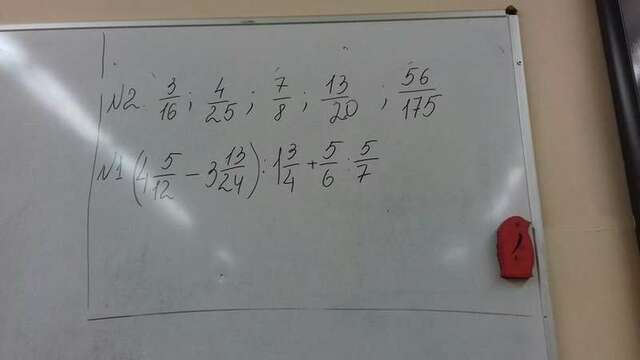 1.
№2. 3/16; 4/25; 7/8; 13/20; 56/175
№1 (4 5/12 − 3 13/24) : 1 3/4 + 5/6 : 5/7